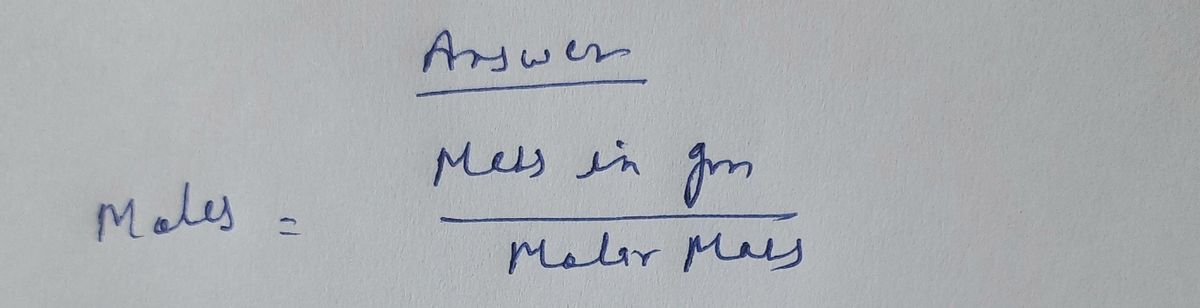 Answer
Moles = Mass in gm
Molar Mass